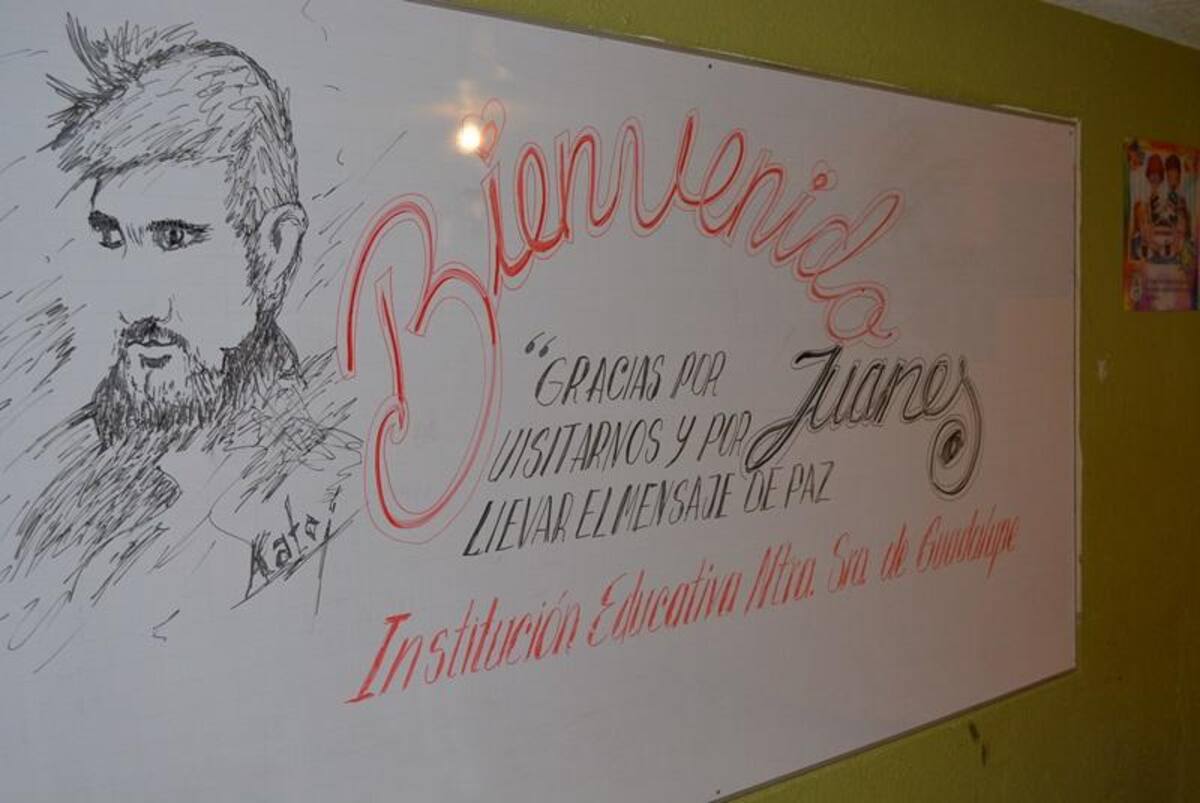 Bienvenido
Juanes
“GRACIAS POR
VISITARNOS Y POR
LLEVAR EL MENSAJE DE PAZ
Institución Educativa Ntra. Sra. de Guadalupe